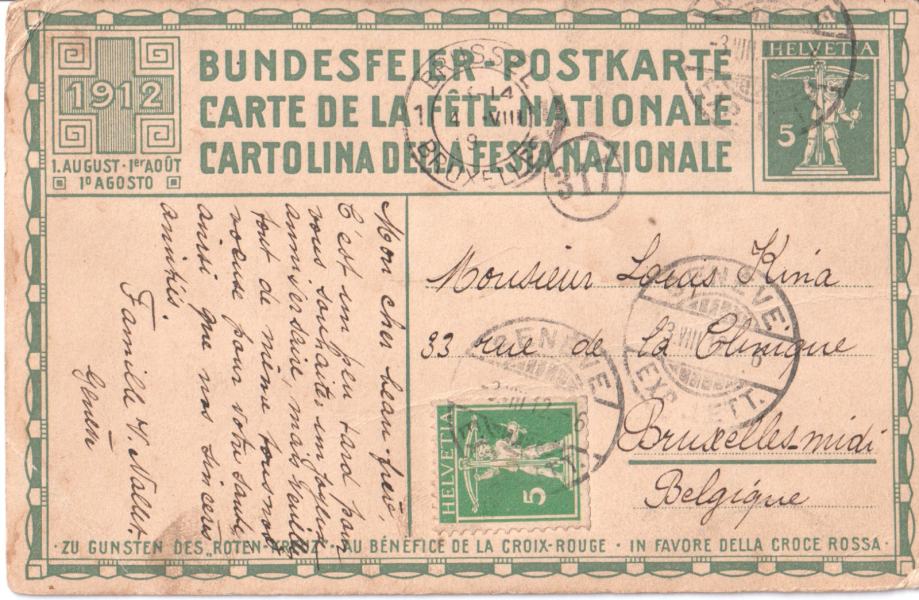 BUNDESFEIER-POSTKARTE
CARTE DE LA FÊTE NATIONALE
CARTOLINA DELLA FESTA NAZIONALE
1912
1.AUGUST · 1er AOÛT
1º AGOSTO
HELVETIA
5
BRUSSEL
14
4 VIII
BRUXELLES
1
317
Mon cher beau-frère,
C'est un peu tard pour
vous souhaiter un joyeux
anniversaire, mais veuillez
tout de même tous mes
voeux pour votre santé,
ainsi que nos sincères
amitiés.
Famille
Genève
Monsieur Louis Kina
33 rue de la Clinique
Bruxelles-midi
Belgique
GENÈVE
3 VIII
EXP. LETT.
GENÈVE
VIII 12
6
HELVETIA
5
· ZU GUNSTEN DES „ROTEN KREUZ" · AU BÉNÉFICE DE LA CROIX-ROUGE · IN FAVORE DELLA CROCE ROSSA ·